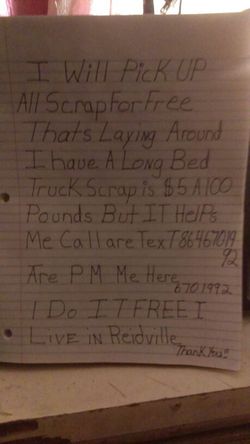 I Will PicK UP
All Scrap For Free
Thats Laying Around
I have A Long Bed
Truck Scrap is $5 A 100
Pounds But IT HelPs
Me Call are TexT 86467019
92
Are PM Me Here
6701992
I Do IT FREE I
Live in Reidville
Thank You!!